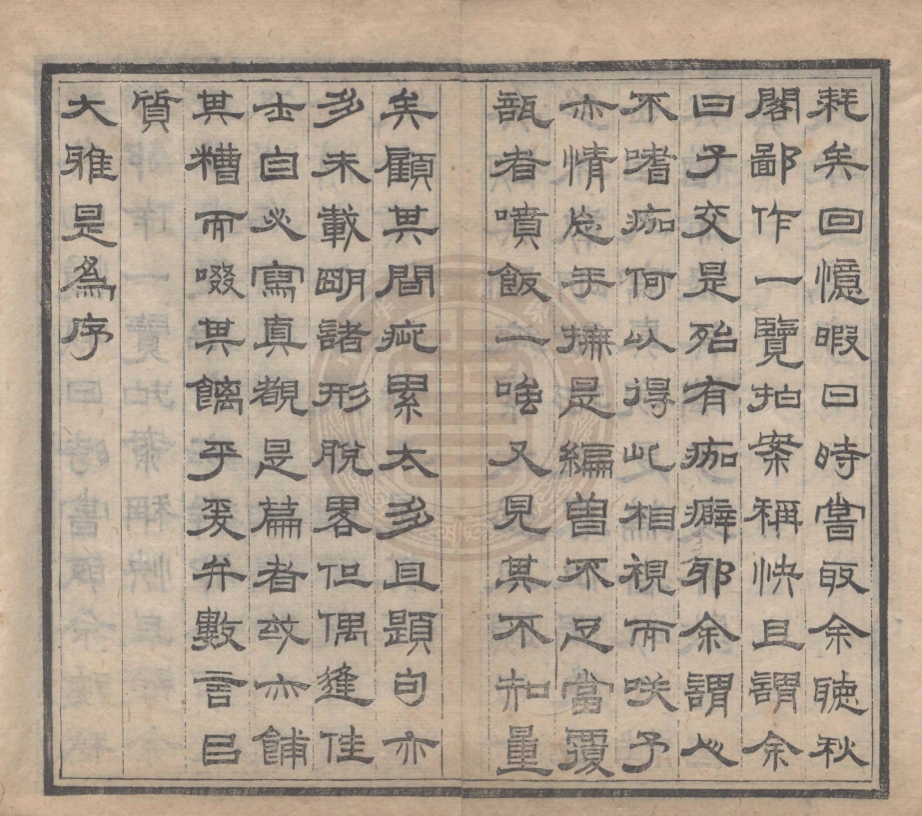 耗矣回憶暇日時嘗取余聴秋
閣鄙作一覽拍案稱快且謂余
曰子交是殆有痂癖邪余謂心
不嗜痂何以得此相視而咲予
亦情忘手撫是編曾不足當覆
瓿者噴飯一唯又見其不知量
矣顧其間疵累太多且題句亦
多未載朙諸形脫畧但偶逢佳
士自必寫真觀是篇者或亦餔
其糟而啜其醨乎爰弁數言㠯
質
大雅是爲序